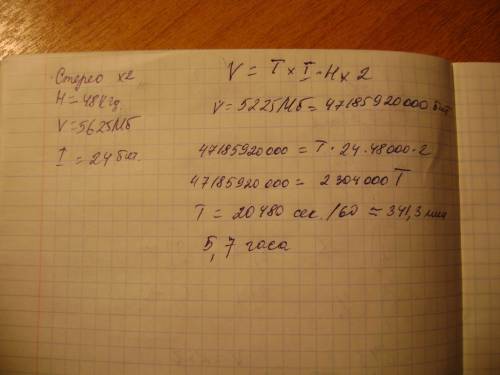 Стерео x2
H = 48 кгц
V = 5625 Мб
I = 24 бит.
V = T × I · H × 2
V = 5225 Мб = 47185920000 бит
47185920000 = T · 24 · 48000 · 2
47185920000 = 2304000 T
T = 20480 сек. /60 ≈ 341,3 мин
5,7 часа